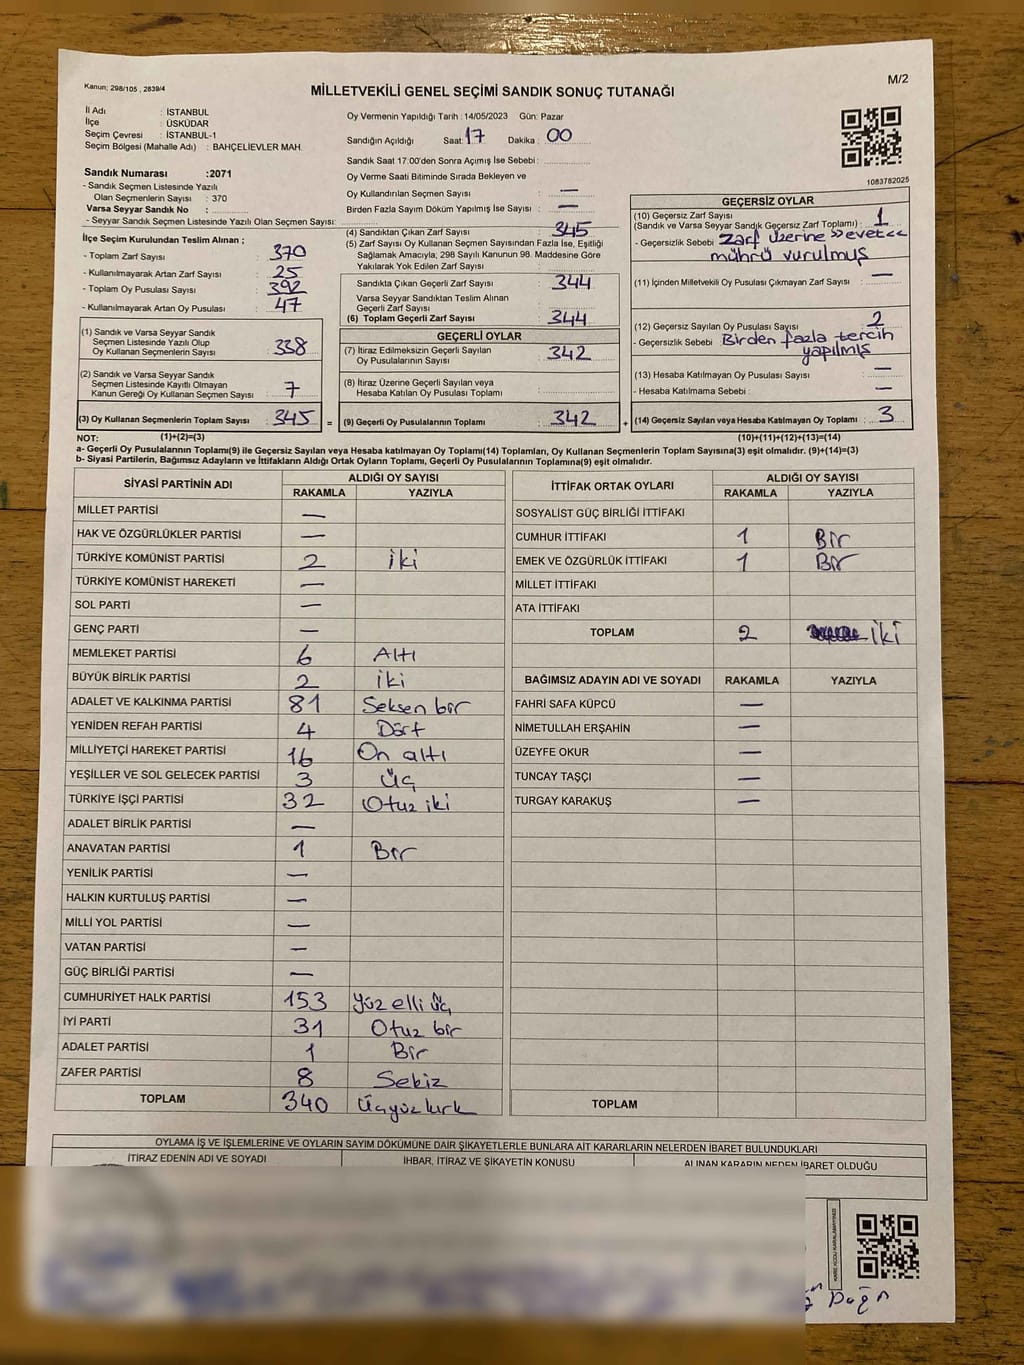 Kanun; 298/105 , 2839/4
MİLLETVEKİLİ GENEL SEÇİMİ SANDIK SONUÇ TUTANAĞI
M/2
İl Adı : İSTANBUL
İlçe : ÜSKÜDAR
Seçim Çevresi : İSTANBUL-1
Seçim Bölgesi (Mahalle Adı) : BAHÇELİEVLER MAH.
Sandık Numarası :2071
- Sandık Seçmen Listesinde Yazılı
Olan Seçmenlerin Sayısı : 370
Varsa Seyyar Sandık No :
- Seyyar Sandık Seçmen Listesinde Yazılı Olan Seçmen Sayısı:
İlçe Seçim Kurulundan Teslim Alınan ;
- Toplam Zarf Sayısı : 370
- Kullanılmayarak Artan Zarf Sayısı : 25
- Toplam Oy Pusulası Sayısı : 392
- Kullanılmayarak Artan Oy Pusulası : 47
(1) Sandık ve Varsa Seyyar Sandık
Seçmen Listesinde Yazılı Olup
Oy Kullanan Seçmenlerin Sayısı : 338
(2) Sandık ve Varsa Seyyar Sandık
Seçmen Listesinde Kayıtlı Olmayan
Kanun Gereği Oy Kullanan Seçmen Sayısı : 7
(3) Oy Kullanan Seçmenlerin Toplam Sayısı : 345 =
Oy Vermenin Yapıldığı Tarih : 14/05/2023 Gün: Pazar
Sandığın Açıldığı Saat: 17 Dakika : 00
Sandık Saat 17:00'den Sonra Açımış İse Sebebi :
Oy Verme Saati Bitiminde Sırada Bekleyen ve
Oy Kullandırılan Seçmen Sayısı : —
Birden Fazla Sayım Döküm Yapılmış İse Sayısı : —
(4) Sandıktan Çıkan Zarf Sayısı : 345
(5) Zarf Sayısı Oy Kullanan Seçmen Sayısından Fazla İse, Eşitliği
Sağlamak Amacıyla, 298 Sayılı Kanunun 98. Maddesine Göre
Yakılarak Yok Edilen Zarf Sayısı :
Sandıkta Çıkan Geçerli Zarf Sayısı : 344
Varsa Seyyar Sandıktan Teslim Alınan
Geçerli Zarf Sayısı :
(6) Toplam Geçerli Zarf Sayısı : 344
GEÇERLİ OYLAR
(7) İtiraz Edilmeksizin Geçerli Sayılan
Oy Pusulalarının Sayısı : 342
(8) İtiraz Üzerine Geçerli Sayılan veya
Hesaba Katılan Oy Pusulası Toplamı :
(9) Geçerli Oy Pusulalarının Toplamı : 342 +
1083782025
GEÇERSİZ OYLAR
(10) Geçersiz Zarf Sayısı
(Sandık ve Varsa Seyyar Sandık Geçersiz Zarf Toplamı) : 1
- Geçersizlik Sebebi : Zarf üzerine »evet«
mührü vurulmuş
(11) İçinden Milletvekili Oy Pusulası Çıkmayan Zarf Sayısı : —
(12) Geçersiz Sayılan Oy Pusulası Sayısı : 2
- Geçersizlik Sebebi Birden fazla tercih
yapılmış
(13) Hesaba Katılmayan Oy Pusulası Sayısı : —
- Hesaba Katılmama Sebebi : —
(14) Geçersiz Sayılan veya Hesaba Katılmayan Oy Toplamı : 3
NOT: (1)+(2)=(3) (10)+(11)+(12)+(13)=(14)
a- Geçerli Oy Pusulalarının Toplamı(9) ile Geçersiz Sayılan veya Hesaba katılmayan Oy Toplamı(14) Toplamları, Oy Kullanan Seçmenlerin Toplam Sayısına(3) eşit olmalıdır. (9)+(14)=(3)
b- Siyasi Partilerin, Bağımsız Adayların ve İttifakların Aldığı Ortak Oyların Toplamı, Geçerli Oy Pusulalarının Toplamına(9) eşit olmalıdır.
SİYASİ PARTİNİN ADI ALDIĞI OY SAYISI
RAKAMLA YAZIYLA
MİLLET PARTİSİ —
HAK VE ÖZGÜRLÜKLER PARTİSİ —
TÜRKİYE KOMÜNİST PARTİSİ 2 iki
TÜRKİYE KOMÜNİST HAREKETİ —
SOL PARTİ —
GENÇ PARTİ —
MEMLEKET PARTİSİ 6 Altı
BÜYÜK BİRLİK PARTİSİ 2 iki
ADALET VE KALKINMA PARTİSİ 81 Seksen bir
YENİDEN REFAH PARTİSİ 4 Dört
MİLLİYETÇİ HAREKET PARTİSİ 16 On altı
YEŞİLLER VE SOL GELECEK PARTİSİ 3 üç
TÜRKİYE İŞÇİ PARTİSİ 32 Otuz iki
ADALET BİRLİK PARTİSİ —
ANAVATAN PARTİSİ 1 Bir
YENİLİK PARTİSİ —
HALKIN KURTULUŞ PARTİSİ —
MİLLİ YOL PARTİSİ —
VATAN PARTİSİ —
GÜÇ BİRLİĞİ PARTİSİ —
CUMHURİYET HALK PARTİSİ 153 Yüz elli üç
İYİ PARTİ 31 Otuz bir
ADALET PARTİSİ 1 Bir
ZAFER PARTİSİ 8 Sekiz
TOPLAM 340 Üçyüzkırk
İTTİFAK ORTAK OYLARI ALDIĞI OY SAYISI
RAKAMLA YAZIYLA
SOSYALİST GÜÇ BİRLİĞİ İTTİFAKI
CUMHUR İTTİFAKI 1 Bir
EMEK VE ÖZGÜRLÜK İTTİFAKI 1 Bir
MİLLET İTTİFAKI
ATA İTTİFAKI
TOPLAM 2 iki
BAĞIMSIZ ADAYIN ADI VE SOYADI RAKAMLA YAZIYLA
FAHRİ SAFA KÜPCÜ —
NİMETULLAH ERŞAHİN —
ÜZEYFE OKUR —
TUNCAY TAŞÇI —
TURGAY KARAKUŞ —
TOPLAM
OYLAMA İŞ VE İŞLEMLERİNE VE OYLARIN SAYIM DÖKÜMÜNE DAİR ŞİKAYETLERLE BUNLARA AİT KARARLARIN NELERDEN İBARET BULUNDUKLARI
İTİRAZ EDENİN ADI VE SOYADI İHBAR, İTİRAZ VE ŞİKAYETİN KONUSU ALINAN KARARIN NEDEN İBARET OLDUĞU